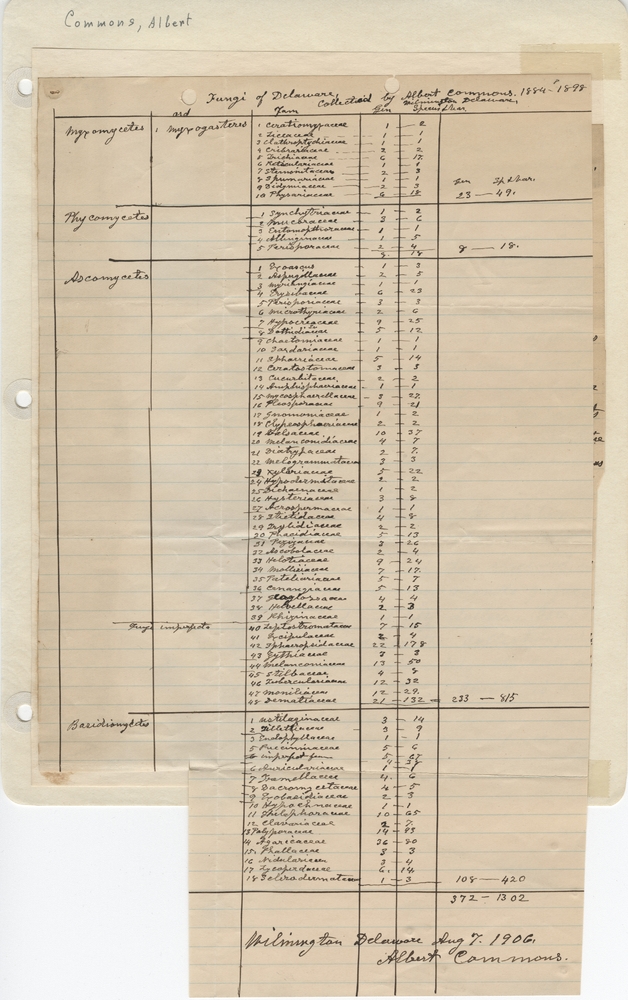 Commons, Albert
Fungi of Delaware, Collected by Albert Commons. 1884-1898
Wilmington Delaware,
ord Fam Gen Species & Var.
Myxomycetes 1 Myxogasteres 1 Ceratiomyxaceae 1 — 2
2 Liceaceae 1 — 1
3 Clathroptychiaceae 1 — 1
4 Cribrariaceae 2 — 2
5 Trichiaceae 6 — 17
6 Reticulariaceae 1 — 1
7 Stemonitaceae 2 — 3
8 Spumariaceae 1 — 1
9 Didymiaceae 2 — 3 Gen Sp & Var.
10 Physariaceae 6 — 18 23 — 49.
Phycomycetes 1 Synchytriaceae 1 — 2
2 Mucoraceae 3 — 6
3 Entomopthoraceae 1 — 1
4 1 — 5
5 Perisporaceae 2 — 4 8 — 18.
8 — 18
Ascomycetes 1 Exoascus 1 — 3
2 2 — 5
3 Myriangiaceae 1 — 1
4 Erysibaceae 6 — 23
5 Perisporiaceae 3 — 3
6 Microthyriaceae 2 — 6
7 Hypocreaceae 9 — 25
8 Dothidiaceae 5 — 12
9 Chaetomiaceae 1 — 1
10 Sordariaceae 1 — 1
11 Sphaeriaceae 5 — 14
12 Ceratostomaceae 3 — 3
13 Cucurbitaceae 2 — 2
14 Amphisphaeriaceae 1 — 1
15 Mycosphaerellaceae 3 — 27
16 Pleosporaceae 9 — 21
17 Gnomoniaceae 1 — 2
18 Clypeosphaeriaceae 2 — 2
19 Valsaceae 10 — 37
20 Melanconidiaceae 4 — 7
21 Diatrypaceae 2 — 7
22 Melogrammataceae 3 — 3
23 Xylariaceae 5 — 22
24 Hypodermataceae 2 — 2
25 Dichaenaceae 1 — 2
26 Hysteriaceae 3 — 8
27 Acrospermaceae 1 — 1
28 Stictidaceae 4 — 8
29 Tryblidiaceae 2 — 2
30 Phacidiaceae 5 — 13
31 Pezizaceae 3 — 26
32 Ascobolaceae 2 — 4
33 Helotiaceae 9 — 24
34 Mollisiaceae 7 — 17
35 5 — 7
36 Cenangiaceae 5 — 13
37 Geoglossaceae 4 — 4
38 Helvellaceae 2 — 3
39 Rhizinaceae 1 — 1
Fungi imperfects 40 Leptostromataceae 7 — 15
41 Excipulaceae 2 — 4
42 Sphaeropsidaceae 22 — 178
43 Zythiaceae 3 — 3
44 Melanconiaceae 13 — 50
45 Stilbaceae 4 — 8
46 Tuberculariaceae 12 — 32
47 Moniliaceae 12 — 29
48 Dematiaceae 21 — 132 233 — 815
Basidiomycetes 1 Ustilaginaceae 3 — 14
2 Tilletiaceae 3 — 9
3 Endophyllaceae 1 — 1
5 Pucciniaceae 5 — 6
6 imperfect fun
6 Auriculariaceae 1 — 1
7 Tremellaceae 4 — 6
8 Dacromycetaceae 4 — 5
9 Exobasidiaceae 2 — 3
10 Hypochnaceae 1 — 1
11 Thelephoraceae 10 — 65
12 Clavariaceae 2 — 7
13 Polyporaceae 14 — 93
14 Agaricaceae 36 — 80
15 Phallaceae 3 — 3
16 Nidulariaceae 3 — 4
17 Lycoperdaceae 6 — 14
18 Sclerodermataceae 1 — 3 108 — 420
372 — 1302
Wilmington Delaware Aug 7. 1906.
Albert Commons.